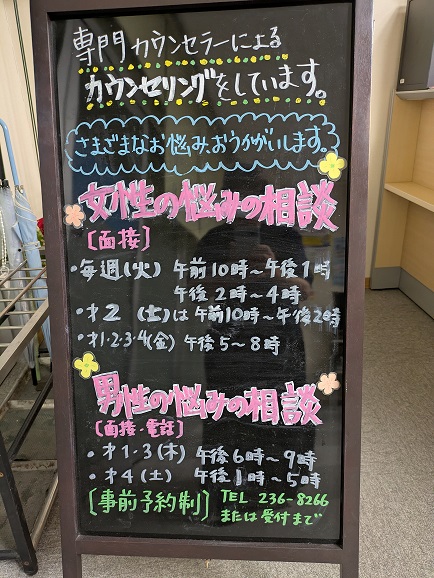 専門カウンセラーによる
カウンセリングをしています。
さまざまなお悩み、おうかがいします。
女性の悩みの相談
〔面接〕
・毎週(火) 午前10時～午後1時
午後2時～4時
・才2 (土)は午前10時～午後2時
・才1・2・3・4(金) 午後5～8時
男性の悩みの相談
〔面接・電話〕
・才1・3(木) 午後6時～9時
・才4(土) 午後1時～5時
〔事前予約制〕 TEL 236-8266
または受付まで